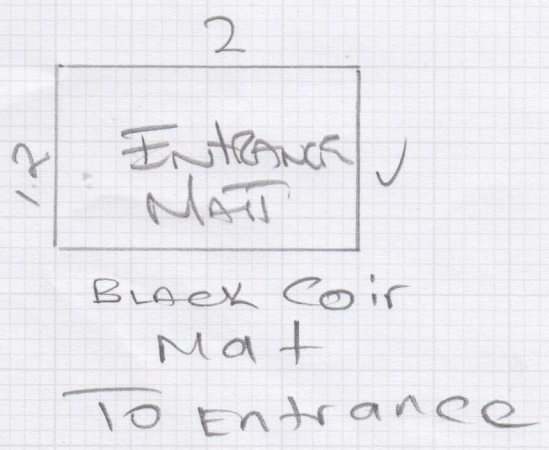 2
1.2
ENTRANCE
MATT
BLACK Coir
Mat
To Entrance